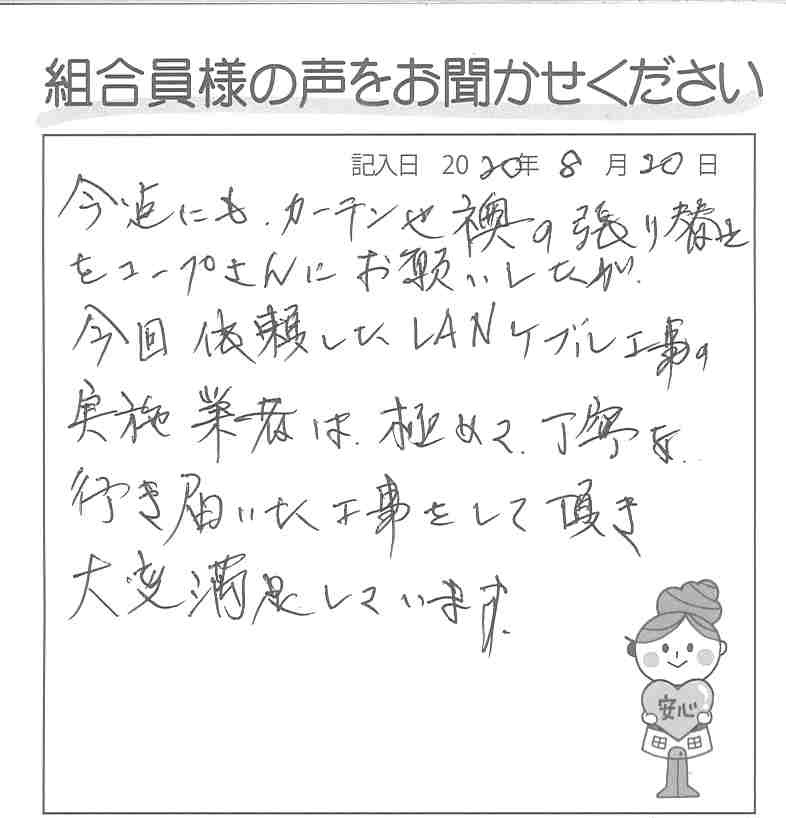 組合員様の声をお聞かせください
記入日 2020年8月20日
今迄にも、カーテンや襖の張り替え
をコープさんにお願いしたが、
今回依頼した LANケーブル工事の
実施業者は、極めて、丁寧な、
行き届いた工事をして頂き
大変満足しています。
安心